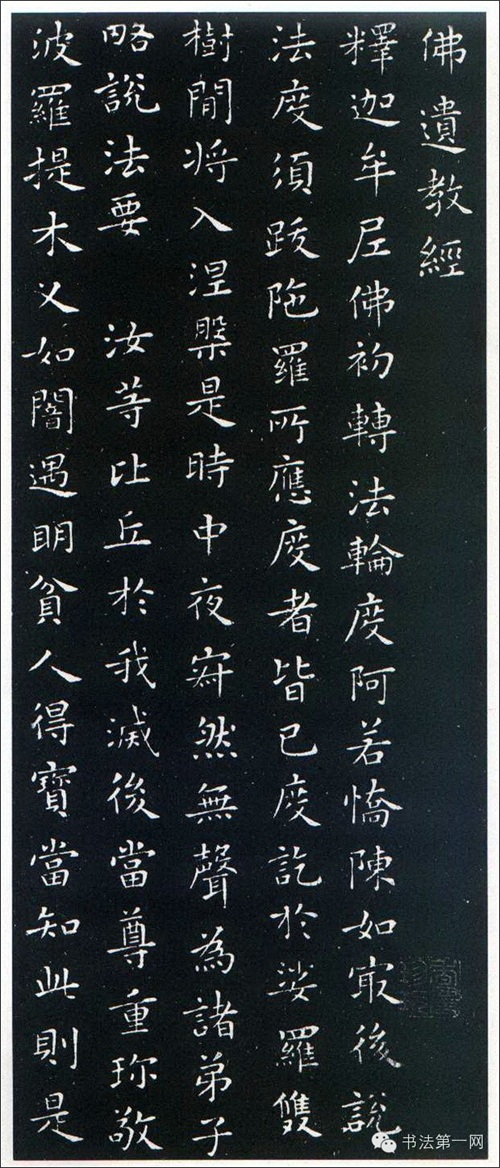 佛遺教經
釋迦牟尼佛初轉法輪度阿若憍陳如㝡後說
法度須跋陁羅所應度者皆已度訖於娑羅雙
樹間将入涅槃是時中夜寂然無聲為諸弟子
略說法要 汝等比丘於我滅後當尊重珎敬
波羅提木叉如闇遇明貧人得寶當知此則是
书法第一网